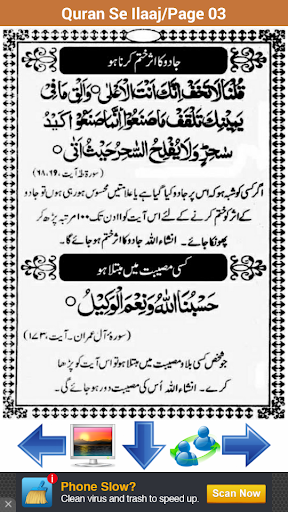 Quran Se Ilaaj/Page 03
جادو کا اثر ختم کرنا ہو
قُلْنَا لَا تَخَفْ اِنَّكَ اَنْتَ الْاَعْلٰى ○ وَاَلْقِ مَا فِیْ
یَمِیْنِكَ تَلْقَفْ مَا صَنَعُوْا اِنَّمَا صَنَعُوْا كَیْدُ
سٰحِرٍ وَلَا یُفْلِحُ السّٰحِرُ حَیْثُ اَتٰى ○
(سورۃ طٰہٰ، آیت، ۶۸،۶۹)
اگر کسی کو شبہ ہو کہ اس پر جادو کیا گیا ہے یا علامتیں محسوس ہو رہی ہوں تو جادو
کے اثر کو ختم کرنے کے لئے اس آیت کو ۱۱ دن تک ۱۰۰ مرتبہ پڑھ کر
پھونکا جائے۔ انشاء اللہ جادو کا اثر ختم ہو جائے گا۔
کسی مصیبت میں مبتلا ہو
حَسْبُنَا اللّٰهُ وَنِعْمَ الْوَكِیْلُ ○
(سورۃ آل عمران۔ آیت، ۱۷۳)
جو شخص کسی بلاء و مصیبت میں مبتلا ہو تو اس آیت کو پڑھا
کرے۔ انشاء اللہ اُس کی مصیبت دور ہو جائے گی۔
Phone Slow?
Clean virus and trash to speed up.
Scan Now